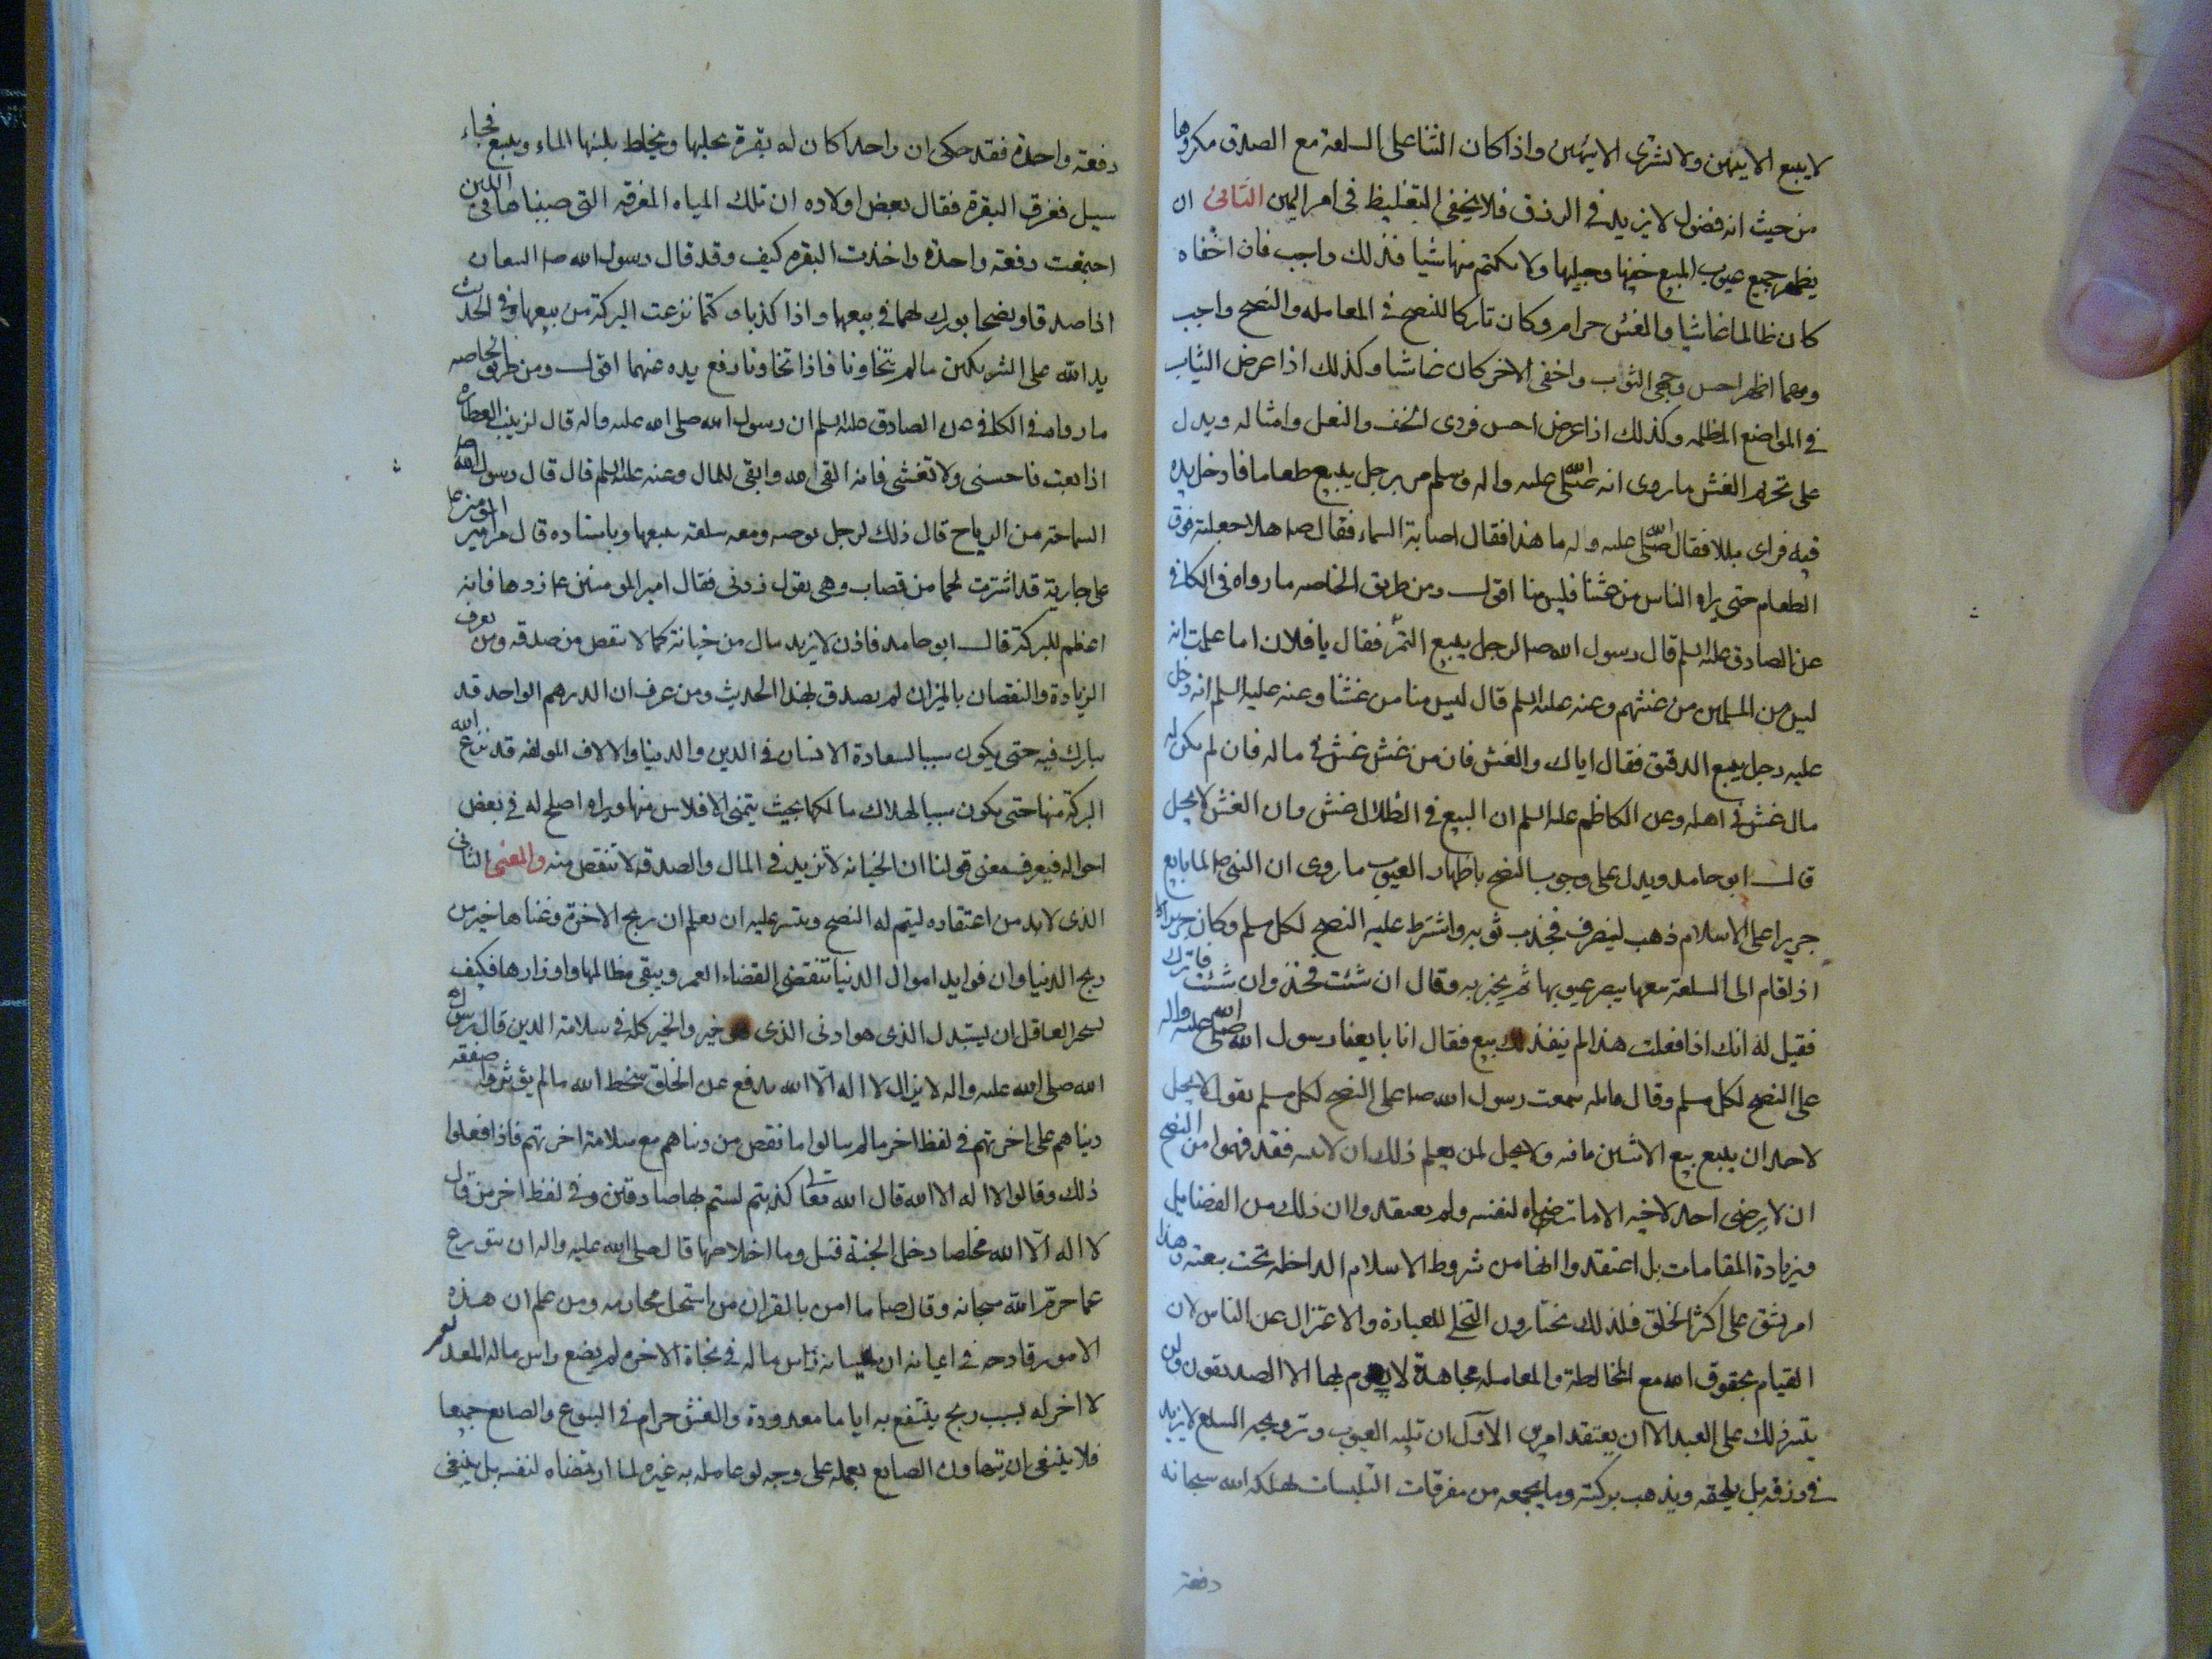 لا يبيع الا بيمين ولا يشترى الا بيمين واذا كان الثنا على السلعة مع الصدق مكروها
من حيث انه فضول لا يزيد فى الرزق فلا يخفى التغليظ فى امر اليمين الثانى ان
يظهر جميع عيوب المبيع خفيها وجليها ولا يكتم منها شيا فذلك واجب فان اخفاه
كان ظالما غاشيا والغش حرام وكان تاركا للنصح فى المعامله والنصح واجب
ومهما اظهر احسن وجهى الثوب واخفى الاخر كان غاشا وكذلك اذا عرض الثياب
فى المواضع المظلمه وكذلك اذا عرض احسن فردى الخف والنعل وامثاله ويدل
على تحريم الغش ما روى انه صلى الله عليه واله وسلم مر برجل يبيع طعاما فادخل يده
فيه فراى بللا فقال صلى الله عليه واله ما هذا فقال اصابة السماء فقال ص هلا جعلته فوق
الطعام حتى يراه الناس من غشنا فليس منا اقول ومن طريق الخاصه ما رواه فى الكافى
عن الصادق عليه السلم قال رسول الله ص لرجل يبيع التمر فقال يا فلان اما علمت انه
ليس من المسلمين من غشهم وعنه عليه السلم قال ليس منا من غشنا وعنه عليه السلم انه دخل
عليه رجل يبيع الدقيق فقال اياك والغش فان من غش غش فى ماله فان لم يكن له
مال غش فى اهله وعن الكاظم عليه السلم ان البيع فى الظلال غش وان الغش لا يحل
قال ابو حامد ويدل على وجوب النصح باظهار العيوب ما روى ان النبى ص لما بايع
جريرا على الاسلام ذهب لينصرف فجذب ثوبه واشترط عليه النصح لكل مسلم وكان جرير
اذا قام الى السلعة معها يبصر عيوبها ثم يخبر به وقال ان شئت فخذ وان شئت فاترك
فقيل له انك اذا فعلت هذا لم ينفذ لك بيع فقال انا بايعنا رسول الله صلى الله عليه واله
على النصح لكل مسلم وقال سمعت رسول الله ص على النصح لكل مسلم يقول لا يحل
لاحد ان يبيع بيع الا يبين ما فيه ولا يحل لمن يعلم ذلك ان لا يبينه فقد فهموا من النصح
ان لا يرضى احد لاخيه الا ما يرضاه لنفسه ولم يعتقدوا ان ذلك من الفضايل
وزيادة المقامات بل اعتقدوا انها من شروط الاسلام الداخله تحت بيعته وهذا
امر يشق على اكثر الخلق فلذلك يختارون التخلى للعبادة والاعتزال عن الناس لان
القيام بحقوق الله مع المخالطة والمعامله مجاهدة لا يقوم بها الا الصديقون ولن
يتيسر ذلك على العبد الا ان يعتقد امرين الاول ان تلبيه العيوب وترويجه السلع لا يزيد
فى رزقه بل يمحقه ويذهب بركته وما يجمعه من مفرقات التلبيسات يهلكه الله سبحانه
دفعة
دفعة واحدة فقد حكى ان واحدا كان له بقرة يحلبها ويخلط بلبنها الماء ويبيع فجاء
سيل فغرق البقرة فقال بعض اولاده ان تلك المياه المفرقه التى صببناها فى اللبن
اجتمعت دفعة واحدة واخذت البقره كيف وقد قال رسول الله ص البيعان
اذا صدقا ونصحا بورك لهما فى بيعها واذا كذبا وكتما نزعت البركة من بيعها وفى الحديث
يد الله على الشريكين ما لم يتخاونا فاذا تخاونا رفع يده عنهما اقول ومن طريق الخاصه
ما رواه فى الكافى عن الصادق عليه السلم ان رسول الله صلى الله عليه واله قال لزينب العطارة
اذا بعت فاحسنى ولا تغشى فانه اتقى لله وابقى للمال وعنه عليه السلم قال قال رسول الله ص
السماحة من الرباح قال ذلك لرجل يوصيه ومعه سلعة يبيعها وباسناده قال مر امير المومنين ع
على جارية قد اشترت لحما من قصاب وهى يقول زدنى فقال امير المومنين ع زدها فانه
اعظم للبركة قال ابو حامد فاذن لا يزيد مال من خيانة كما لا ينقص من صدقه ومن لم يعرف
الزيادة والنقصان بالميزان لم يصدق بهذا الحديث ومن عرف ان الدرهم الواحد قد
يبارك فيه حتى يكون سببا لسعادة الانسان فى الدين والدنيا والالاف المولفه قد ينزع الله
البركة منها حتى يكون سببا لهلاك مالكها بحيث يتمنى الافلاس منها ويراه اصلح له فى بعض
احواله فيعرف معنى قولنا ان الخيانه لا تزيد فى المال والصدقه لا تنقص منه والمعنى الثانى
الذى لا بد من اعتقاده ليتم له النصح ويتيسر عليه ان يعلم ان ربح الاخرة وغناها خير من
ربح الدنيا وان فوايد اموال الدنيا تنقضى بانقضاء العمر ويبقى مظالمها واوزارها فكيف
يستجيز العاقل ان يستبدل الذى هو ادنى الذى هو خير والخير كله فى سلامة الدين قال رسول
الله صلى الله عليه واله لا يزال لا اله الا الله يدفع عن الخلق سخط الله ما لم يؤثروا صفقة
دنياهم على اخرتهم فى لفظ اخر ما لم يبالوا ما نقص من دنياهم مع سلامة اخرتهم فاذا فعلوا
ذلك وقالوا لا اله الا الله قال الله تعالى كذبتم لستم بها صادقين وفى لفظ اخر من قال
لا اله الا الله مخلصا دخل الجنة قيل وما اخلاصها قال صلى الله عليه واله ان تتورع
عما حرم الله سبحانه وقال ص ما امن بالقران من استحل محارمه ومن علم ان هذه
الامور قادحه فى ايمانه ان ايمانه راس ماله فى نجاة الاخره لم يضع راس ماله المعد لعمر
لا اخر له بسبب ربح ينتفع به اياما معدودة والغش حرام فى البيوع والصنايع جميعا
فلا ينبغى ان يتهاون الصانع بعمله على وجه لو عامله به غيره لما ارتضاه لنفسه بل ينبغى